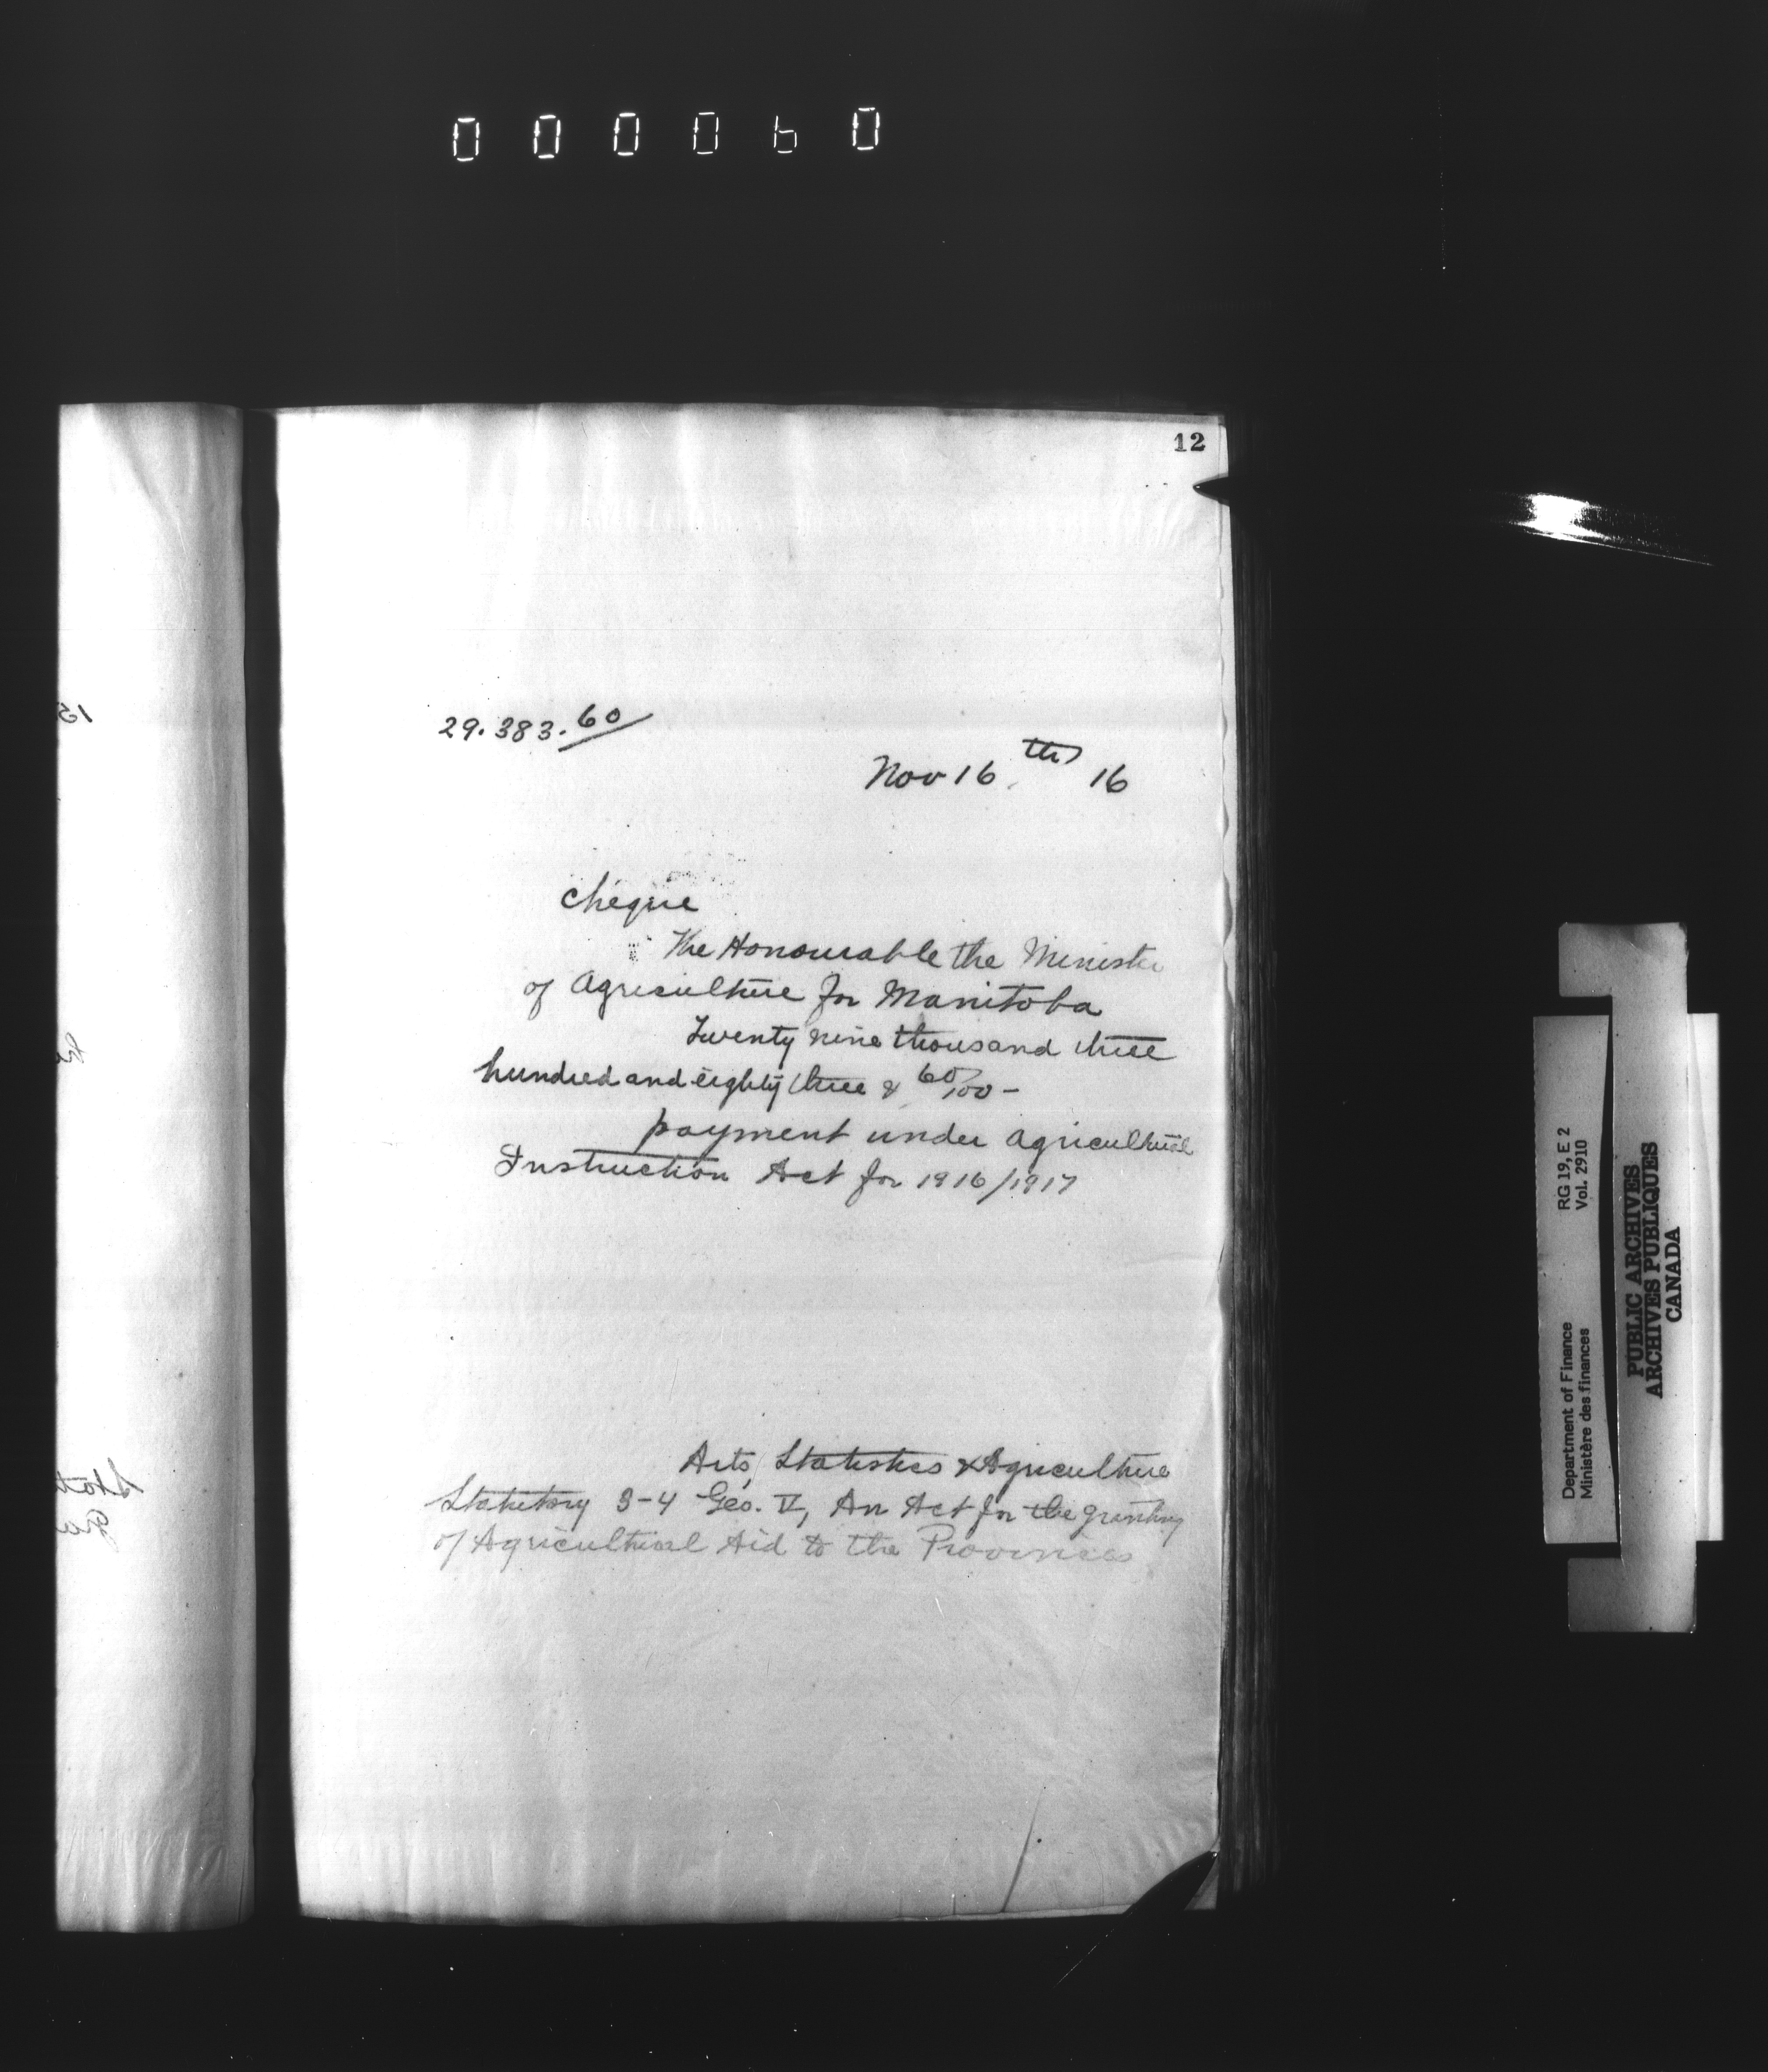 000060
12
29.383.60
Nov 16th 16
cheque
The Honourable the Minister
of Agriculture for Manitoba
Twenty nine thousand three
hundred and eighty three & 60/100 -
payment under Agricultural
Instruction Act for 1916/1917
Arts, Statistics & Agriculture
Statutory 3-4 Geo. V, An Act for the granting
of Agricultural Aid to the Provinces
Department of Finance RG 19, E 2
Ministère des finances Vol. 2910
PUBLIC ARCHIVES
ARCHIVES PUBLIQUES
CANADA